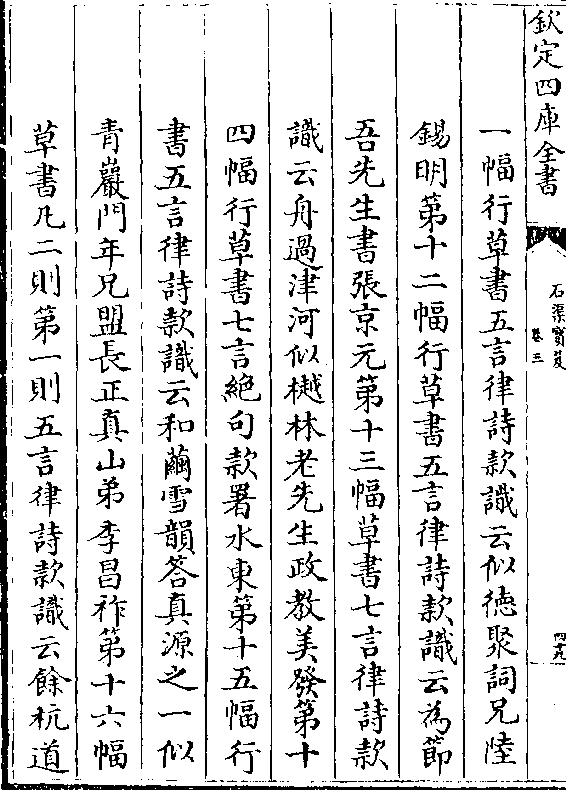 欽定四庫全書
石渠寶笈
卷三
一幅行草書五言律詩款識云似德聚詞兄陸
錫明第十二幅行草書五言律詩款識云為節
吾先生書張京元第十三幅草書七言律詩款
識云舟過津河似樾林老先生政教美發第十
四幅行草書七言絶句款署水東第十五幅行
書五言律詩款識云和蘭雪韻答真源之一似
青巖門年兄盟長正真山弟李昌祚第十六幅
草書凡二則第一則五言律詩款識云餘杭道